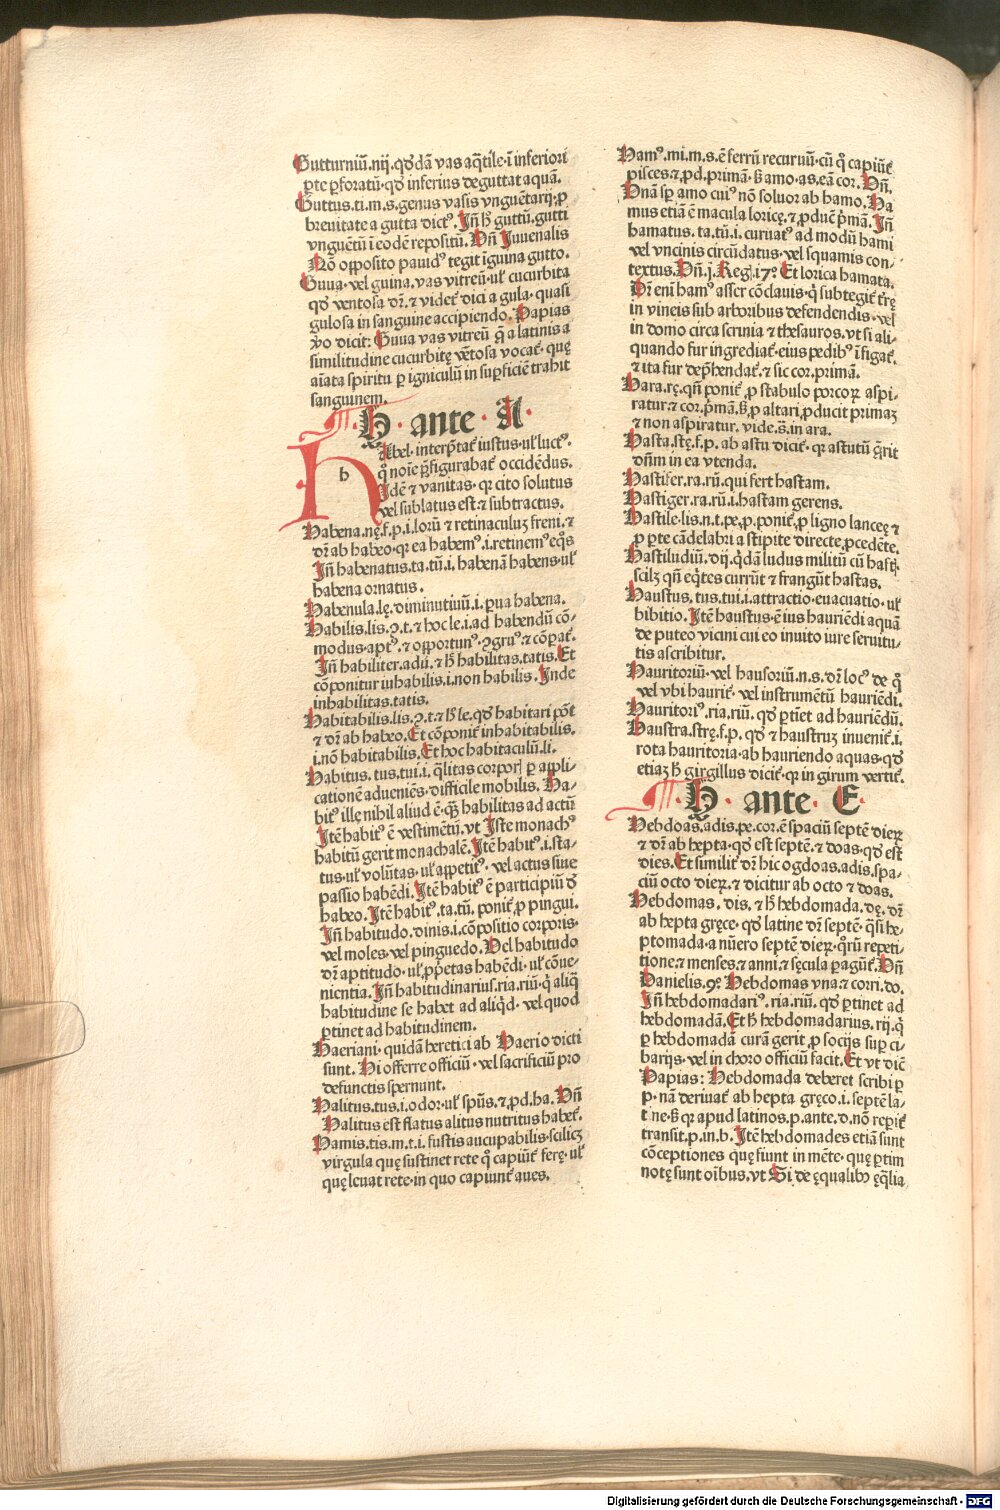 Gutturniū.nij.qđdā vas aq̄tile.ī inferiori
ꝑte ꝑforatū.qđ inferius deguttat aquā.
Guttus.ti.m.s.genus vasis vnguētarij.ꝓ
breuitate a gutta dictꝰ. Jn̄ hͦ guttū.gutti
vnguētū ī eodē repositū. Vn̄ Juuenalis
Nō opposito pauidꝰ tegit īguina gutto.
Guua.vel guina.vas vitreū.uƚ cucurbita
qđ ventosa dr̄.⁊ videt̄ dici a gula.quasi
gulosa in sanguine accipiendo. Papias
ꝟo dicit: Guua vas vitreū q̄ a latinis a
similitudine cucurbitę vētosa vocat̄. quę
aīata spiritu ꝑ igniculū in suꝑficiē trahit
sanguinem.
H. ante. A.
h
Abel.interp̄tat̄ iustus.uƚ luctꝰ.
q̊ noīe p̄figurabat̄ occidēdus.
Jdē ⁊ vanitas. qꝛ cito solutus
vel sublatus est.⁊ subtractus.
Habena.nę.f.p.i.lorū ⁊ retinaculuꝫ freni.⁊
dr̄ ab habeo.qꝛ ea habemꝰ.i.retinemꝰ eq̊s
Jn̄ habenatus.ta.tū.i. habenā habens.uƚ
habena ornatus.
Habenula.lę.diminutiuū.i.ꝑua habena.
Habilis.lis.ꝯ.t.⁊ hoc le.i.ad habendū cō-
modus.aptꝰ.⁊ opportunꝰ.ꝯgruꝰ.⁊ cōpat̄.
Jn̄ habiliter.adū.⁊ hͨ habilitas.tatis. Et
cōponitur inhabilis.i.non habilis. Jnde
inhabilitas.tatis.
Habitabilis.lis.ꝯ.t.⁊ hͨ le.qđ habitari pōt
⁊ dr̄ ab habeo. Et cōponit̄ inhabitabilis.
i.nō habitabilis. Et hoc habitaculū.li.
Habitus.tus.tui.i.q̄litas corporꝭ ꝑ appli-
cationē adueniēs.difficile mobilis. Ha-
bitꝰ ille nihil aliud ē.q̄ꝫ habilitas ad actū
Jtē habitꝰ ē vestimētū.vt Jste monachꝰ
habitū gerit monachalē. Jtē habitꝰ.i.sta-
tus.uƚ volūtas.uƚ appetitꝰ. vel actus siue
passio habēdi. Jtē habitꝰ ē participiū đ
habeo. Jtē habitꝰ.ta.tū. ponit̄ ꝓ pingui.
Jn̄ habitudo.dinis.i.cōpositio corporis.
vel moles.vel pinguedo. Vel habitudo
dr̄ aptitudo.uƚ ꝓp̄etas habēdi.uƚ cōue-
nientia. Jn̄ habitudinarius.ria.riū.q̇ aliq̄
habitudine se habet ad aliq̇d.vel quod
ꝑtinet ad habitudinem.
Haeriani.quidā heretici ab Haerio dicti
sunt. Hi offerre officiū.vel sacrificiū pro
defunctis spernunt.
Halitus.tus.i.odor.uƚ spūs.⁊ ꝓd.ha. Vn̄
Halitus est flatus alitus nutritus habet̄.
Hamis.tis.m.t.i. fustis aucupabilis.scilicꝫ
virgula quę sustinet rete q̊ capiūt̄ ferę.uƚ
quę leuat rete.in quo capiunt̄ aues.
Hamꝰ.mi.m.s.ē ferrū recuruū.cū q̊ capiūt̄
pisces.⁊ ꝓd.primā.s̄ amo.as.eā cor. Vn̄.
Vnā sꝑ amo cuiꝰ nō soluor ab hamo. Ha
mus etiā ē macula loricę.⁊ ꝓduc̄ p̄mā. Jn̄
hamatus.ta.tū.i.curuatꝰ ad modū hami
vel vncinis circūdatus.vel squamis con-
textus. Vn̄.j. Reg̃.17ͦ. Et lorica hamata.
Dr̄ enī hamꝰ asser cōclauis.q̇ subtegit̄ tr̄ę
in vineis sub arboribus defendendis.vel
in domo circa scrinia ⁊ thesauros.vt si ali-
quando fur ingrediat̄.eius pedibꝰ īfigat̄.
⁊ ita fur dep̄hendat̄.⁊ sic cor.primā.
Hara.rę.qn̄ ponit̄ ꝓ stabulo porcoꝝ aspi-
ratur.⁊ cor.p̄mā.s̄ ꝓ altari.ꝓducit primaꝫ
⁊ non aspiratur. vide.s̄.in ara.
Hasta.stę.f.p. ab astu dicit̄. qꝛ astutū q̄rit
dn̄m in ea vtenda.
Hastifer.ra.rū.qui fert hastam.
Hastiger.ra.rū.i.hastam gerens.
Hastile.lis.n.t.pe.ꝓ.ponit̄ ꝓ ligno lanceę ⁊
ꝓ ꝑte cādelabri a stipite directe ꝓcedēte.
Hastiludiū.dij.q̇dā ludus militū cū hastꝭ.
scilꝫ qn̄ eq̇tes currūt ⁊ frangūt hastas.
Haustus.tus.tui.i.attractio.euacuatio.uƚ
bibitio. Jtē haustus.ē ius hauriēdi aquā
de puteo vicini cui eo inuito iure seruitu-
tis ascribitur.
Hauritoriū.vel hausoriū.n.s.dr̄ locꝰ de q̊
vel vbi haurit̄.vel instrumētū hauriēdi.
Hauritoriꝰ.ria.riū. qđ ꝑtīet ad hauriēdū.
Haustra.strę.f.p. qđ ⁊ haustruꝫ inuenit̄.i.
rota hauritoria.ab hauriendo aquas.qđ
etiaꝫ hͨ girgillus dicit̄.qꝛ in girum vertit̄.
H. ante. E
Hebdoas.adis.pe.cor.ē spaciū septē dieꝝ
⁊ dr̄ ab hepta.qđ est septē.⁊ doas.qđ est
dies. Et similit̄ dr̄ hic ogdoas.adis.spa-
ciū octo dieꝝ.⁊ dicitur ab octo ⁊ doas.
Hebdomas.dis.⁊ hͨ hebdomada.dę.dr̄
ab hepta gręce.qđ latine dr̄ septē.q̄si he-
ptomada.a nūero septē dieꝝ.q̊rū repeti-
tione.⁊ menses.⁊ anni.⁊ sęcula ꝑagūt̄. Vn̄
Danielis.9ͦ. Hebdomas vna.⁊ corri.do.
Jn̄ hebdomadariꝰ.ria.riū.qđ ꝑtinet ad
hebdomadā. Et hͨ hebdomadarius.rij.q̇
ꝑ hebdomadā curā gerit ꝓ socijs suꝑ ci-
barijs.vel in choro officiū facit. Et vt dic̄
Papias: Hebdomada deberet scribi ꝑ
p.nā deriuat̄ ab hepta gręco.i.septē la-
tine.s̄ qꝛ apud latinos.p.ante.d.nō reꝑit̄
transit.p.in.b. Jtē hebdomades etiā sunt
cōceptiones quę fiunt in mēte.quę ꝑtim
notę sunt oībus.vt Si de ęqualibꝰ ęq̄lia
Digitalisierung gefördert durch die Deutsche Forschungsgemeinschaft - DFG